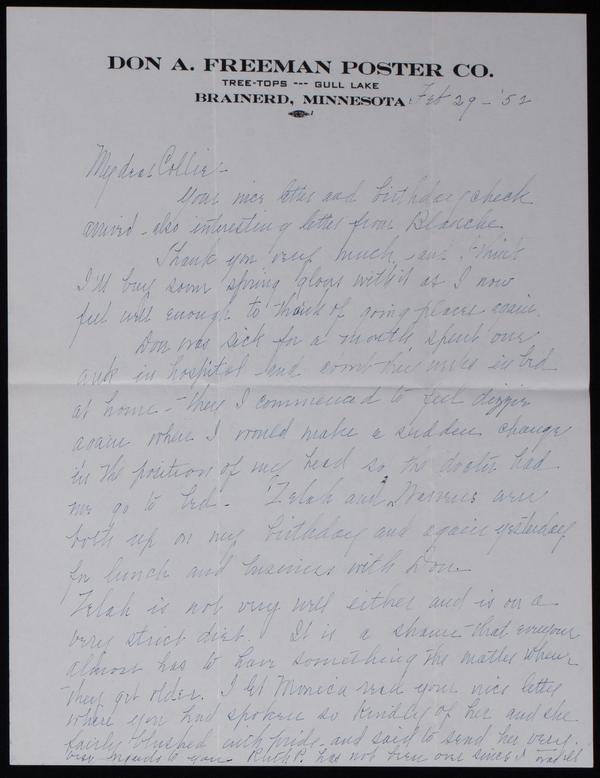 DON A. FREEMAN POSTER CO.
TREE-TOPS --- GULL LAKE
BRAINERD, MINNESOTA
Feb 29 - '52
My dear Collie -
Your nice letter and birthday check
arrived - also interesting letter from Blanche
Thank you very much, and I think
I'll buy some spring gloves with it as I now
feel well enough to think of going places again.
Don was sick for a month spent one
week in hospital and about three weeks in bed
at home - then I commenced to feel dizzy
again when I would make a sudden change
in the position of my head so the doctor had
me go to bed. Zelah and were
both up on my birthday and again yesterday
for lunch and business with Don.
Zelah is not very well either and is on a
very strict diet. It is a shame that everyone
almost has to have something the matter when
they get older. I let Monica read your nice letter
where you had spoken so kindly of her and she
fairly blushed with pride and said to send her very
best regards to you. Ruth P. has not been over since I